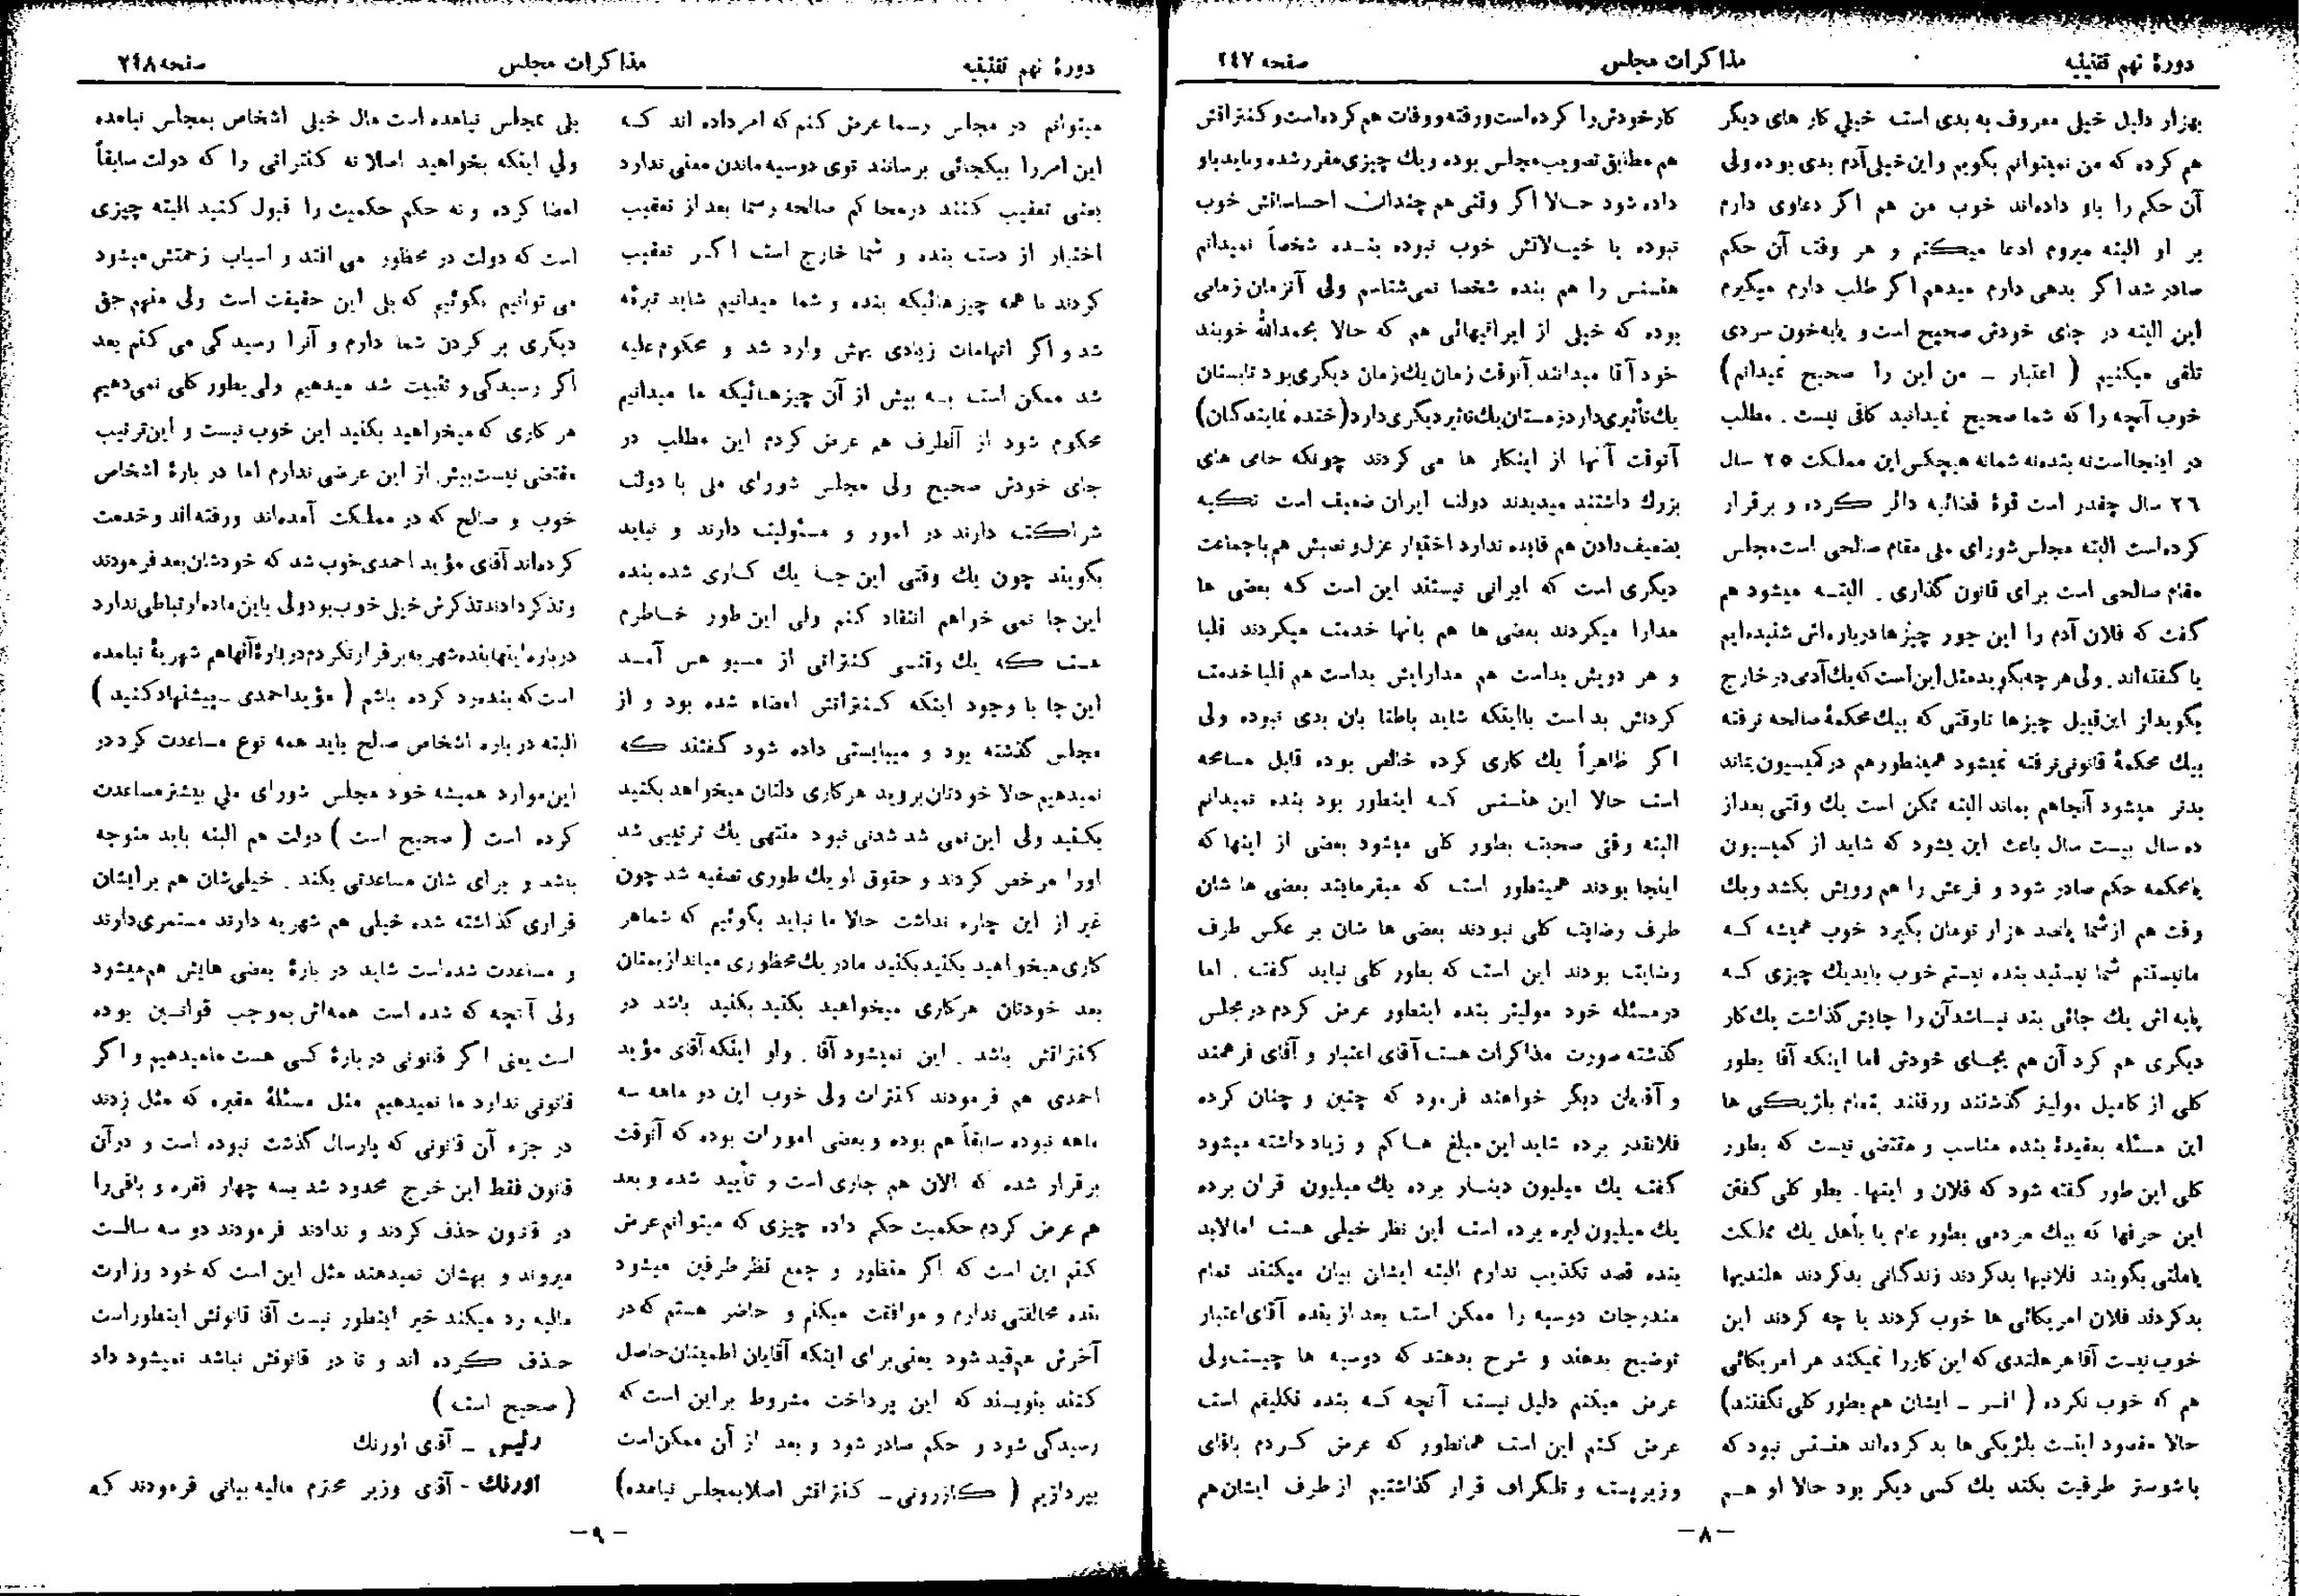 دورهٔ نهم تقنینیه
مذاکرات مجلس
صفحه ۲٤۷
بهزار دلیل خیلی معروف به بدی است خیلی کار های دیگر
هم کرده که من نمیتوانم بگویم و این خیلی آدم بدی بوده ولی
آن حکم را باو داده‌اند خوب من هم اگر دعاوی دارم
بر او البته میروم ادعا میکنم و هر وقت آن حکم
صادر شد اگر بدهی دارم میدهم اگر طلب دارم میگیرم
این البته در جای خودش صحیح است و باید خون سردی
تلقی میکنیم ( اعتبار ـ من این را صحیح نمیدانم )
خوب آنچه را که شما صحیح نمیدانید کافی نیست . مطلب
در اینجا است نه بنده نه شما نه هیچکس این مملکت ۲٥ سال
۲٦ سال چقدر است قوهٔ قضائیه دائر کرده و برقرار
کرده است البته مجلس شورای ملی مقام صالحی است مجلس
مقام صالحی است برای قانون گذاری . البته میشود هم
گفت که فلان آدم را این جور چیزها درباره‌اش شنیده‌ایم
یا گفته‌اند . ولی هر چه بگوید مثل این است که یك آدمی در خارج
بگوید از این قبیل چیزها تا وقتی که بیك محکمهٔ صالحه نرفته
بیك محکمهٔ قانونی نرفته نمیشود همینطور هم در کمیسیون بماند
بدتر میشود آنجا هم بماند البته ممکن است یك وقتی بعد از
ده سال بیست سال باعث این بشود که شاید از کمیسیون
یا محکمه حکم صادر شود و فرعش را هم رویش بکشد و یك
وقت هم از شما پانصد هزار تومان بگیرد خوب همیشه که
ما نیستیم شما نیستید بنده نیستم خوب باید یك چیزی که
پایه اش یك جائی بند نباشد آن را جایش گذاشت یك کار
دیگری هم کرد آن هم بجای خودش اما اینکه آقا بطور
کلی از کامیل مولیتر گذشتند و رفتند بتمام بلژیکی ها
این مسئله بعقیدهٔ بنده مناسب و مقتضی نیست که بطور
کلی این طور گفته شود که فلان و اینها . بطور کلی گفتن
این حرفها که بیك مردمی بطور عام یا باهل یك مملکت
یا ملتی بگویند فلانیها بد کردند زندگانی بد کردند هلندیها
بد کردند فلان امریکائی ها خوب کردند یا چه کردند این
خوب نیست آقا هر هلندی که این کار را نمیکند هر امریکائی
هم که خوب نکرده ( افسر ـ ایشان هم بطور کلی نگفتند )
حالا مقصود اینست بلژیکی ها بد کرده‌اند هنسنس نبود که
با شوستر طرفیت بکند یك کسی دیگر بود حالا او هم
کار خودش را کرده است و رفته و وفات هم کرده است و کنتراتش
هم مطابق تصویب مجلس بوده و یك چیزی مقرر شده و باید باو
داده شود حالا اگر وقتی هم چندان احساساتش خوب
نبوده یا خیالاتش خوب نبوده بنده شخصاً نمیدانم
هنسنس را هم بنده شخصا نمی‌شناسم ولی آنزمان زمانی
بوده که خیلی از ایرانیهائی هم که حالا بحمدالله خوبند
خود آقا میدانند آنوقت زمان یك زمان دیگری بود تابستان
یك تأثیری دارد زمستان یك تأثیر دیگری دارد (خنده نمایندگان)
آنوقت آنها از اینکار ها می کردند چونکه حامی های
بزرك داشتند میدیدند دولت ایران ضعیف است تکیه
بضعیف دادن هم فایده ندارد اختیار عزل و نصبش هم با جماعت
دیگری است که ایرانی نیستند این است که بعضی ها
مدارا میکردند بعضی ها هم بآنها خدمت میکردند قلبا
و هر دویش بد است هم مدارایش بد است هم قلبا خدمت
کردنش بد است با اینکه شاید باطنا بان بدی نبوده ولی
اگر ظاهراً یك کاری کرده خالص بوده قابل مسامحه
است حالا این هنسنس که اینطور بود بنده نمیدانم
البته وقتی صحبت بطور کلی میشود بعضی از اینها که
اینجا بودند همینطور است که میفرمایند بعضی ها شان
طرف رضایت کلی نبودند بعضی ها شان بر عکس طرف
رضایت بودند این است که بطور کلی نباید گفت . اما
در مسئله خود مولیتر بنده اینطور عرض کردم در مجلس
گذشته صورت مذاکرات هست آقای اعتبار و آقای فرهمند
و آقایان دیگر خواهند فرمود که چنین و چنان کرده
فلانقدر برده شاید این مبلغ ها کم و زیاد داشته میشود
گفت یك میلیون دینار برده یك میلیون قران برده
یك میلیون لیره برده است این نظر خیلی هست اما لابد
بنده قصد تکذیب ندارم البته ایشان بیان میکنند تمام
مندرجات دوسیه را ممکن است بعد از بنده آقای اعتبار
توضیح بدهند و شرح بدهند که دوسیه ها چیست ولی
عرض میکنم دلیل نیست آنچه که بنده تکلیفم است
عرض کنم این است همانطور که عرض کردم باقای
وزیر پست و تلگراف قرار گذاشتیم از طرف ایشان هم
ـ ۸ ـ
دورهٔ نهم تقنینیه
مذاکرات مجلس
صفحه ۲٤۸
میتوانم در مجلس رسما عرض کنم که امر داده اند که
این امر را بیکجائی برسانند توی دوسیه ماندن معنی ندارد
یعنی تعقیب کنند در محاکم صالحه رسما بعد از تعقیب
اختیار از دست بنده و شما خارج است اگر تعقیب
کردند با همه چیز هائیکه بنده و شما میدانیم شاید تبرئه
شد و اگر اتهامات زیادی بهش وارد شد و محکوم علیه
شد ممکن است به بیش از آن چیزهائیکه ما میدانیم
محکوم شود از آنطرف هم عرض کردم این مطلب در
جای خودش صحیح ولی مجلس شورای ملی با دولت
شراکت دارند در امور و مسئولیت دارند و نباید
بگویند چون یك وقتی این جا یك کاری شده بنده
این جا نمی خواهم انتقاد کنم ولی این طور خاطرم
هست که یك وقتی کنتراتی از مسیو هس آمد
این جا با وجود اینکه کنتراتش امضاء شده بود و از
مجلس گذشته بود و میبایستی داده شود گفتند که
نمیدهیم حالا خودتان بروید هر کاری دلتان میخواهد بکنید
بکنید ولی این نمی شد شدنی نبود منتهی یك ترتیبی شد
او را مرخص کردند و حقوق او یك طوری تصفیه شد چون
غیر از این چاره نداشت حالا ما نباید بگوئیم که شما هر
کاری میخواهید بکنید بکنید ما در یك محظوری میاندازیمتان
بعد خودتان هر کاری میخواهید بکنید بکنید باشد در
کنتراتش باشد . این نمیشود آقا . ولو اینکه آقای مؤید
احمدی هم فرمودند کنترات ولی خوب این دو ماهه سه
ماهه نبوده سابقاً هم بوده و بعضی امورات بوده که آنوقت
برقرار شده که الان هم جاری است و تأیید شده و بعد
هم عرض کردم حکمیت حکم داده چیزی که میتوانم عرض
کنم این است که اگر منظور و جمع نظر طرفین میشود
بنده مخالفتی ندارم و موافقت میکنم و حاضر هستم که در
آخرش هم قید شود یعنی برای اینکه آقایان اطمینان حاصل
کنند بنویسند که این پرداخت مشروط بر این است که
رسیدگی شود و حکم صادر شود و بعد از آن ممکن است
بپردازیم ( کازرونی ـ کنتراتش اصلا بمجلس نیامده )
بلی بمجلس نیامده است مال خیلی اشخاص بمجلس نیامده
ولی اینکه بخواهید اصلا نه کنتراتی را که دولت سابقاً
امضا کرده و نه حکم حکمیت را قبول کنید البته چیزی
است که دولت در محظور می افتد و اسباب زحمتش میشود
می توانیم بگوئیم که بلی این حقیقت است ولی منهم حق
دیگری بر گردن شما دارم و آنرا رسیدگی می کنم بعد
اگر رسیدگی و تثبیت شد میدهیم ولی بطور کلی نمی‌دهیم
هر کاری که میخواهید بکنید این خوب نیست و این ترتیب
مقتضی نیست بیش از این عرضی ندارم اما در بارهٔ اشخاص
خوب و صالح که در مملکت آمده‌اند و رفته‌اند و خدمت
کرده‌اند آقای مؤید احمدی خوب شد که خودشان بعد فرمودند
و تذکر دادند تذکرش خیلی خوب بود ولی باین ماده ارتباطی ندارد
درباره اینها بنده شهریه برقرار نکردم در بارهٔ آنها هم شهریهٔ نیامده
است که بنده رد کرده باشم ( مؤید احمدی ـ پیشنهاد کنید )
البته در باره اشخاص صالح باید همه نوع مساعدت کرد در
این موارد همیشه خود مجلس شورای ملی بیشتر مساعدت
کرده است ( صحیح است ) دولت هم البته باید متوجه
باشد و برای شان مساعدتی بکند . خیلی‌شان هم برایشان
قراری گذاشته شده خیلی هم شهریه دارند مستمری دارند
و مساعدت شده است شاید در بارهٔ بعضی هایش هم میشود
ولی آنچه که شده است همه‌اش بموجب قوانین بوده
است یعنی اگر قانونی در بارهٔ کسی هست ما میدهیم و اگر
قانونی ندارد ما نمیدهیم مثل مسئلهٔ مقبره که مثل زدند
در جزء آن قانونی که پارسال گذشت نبوده است و در آن
قانون فقط این خرج محدود شد بسه چهار فقره و باقی را
در قانون حذف کردند و ندادند فرمودند دو سه سال است
میروند و بهشان نمیدهند مثل این است که خود وزارت
مالیه رد میکند خیر اینطور نیست آقا قانونش اینطور است
حذف کرده اند و تا در قانونش نباشد نمیشود داد
( صحیح است )
رئیس ـ آقای اورنك
اورنك ـ آقای وزیر محترم مالیه بیانی فرمودند که
ـ ۹ ـ